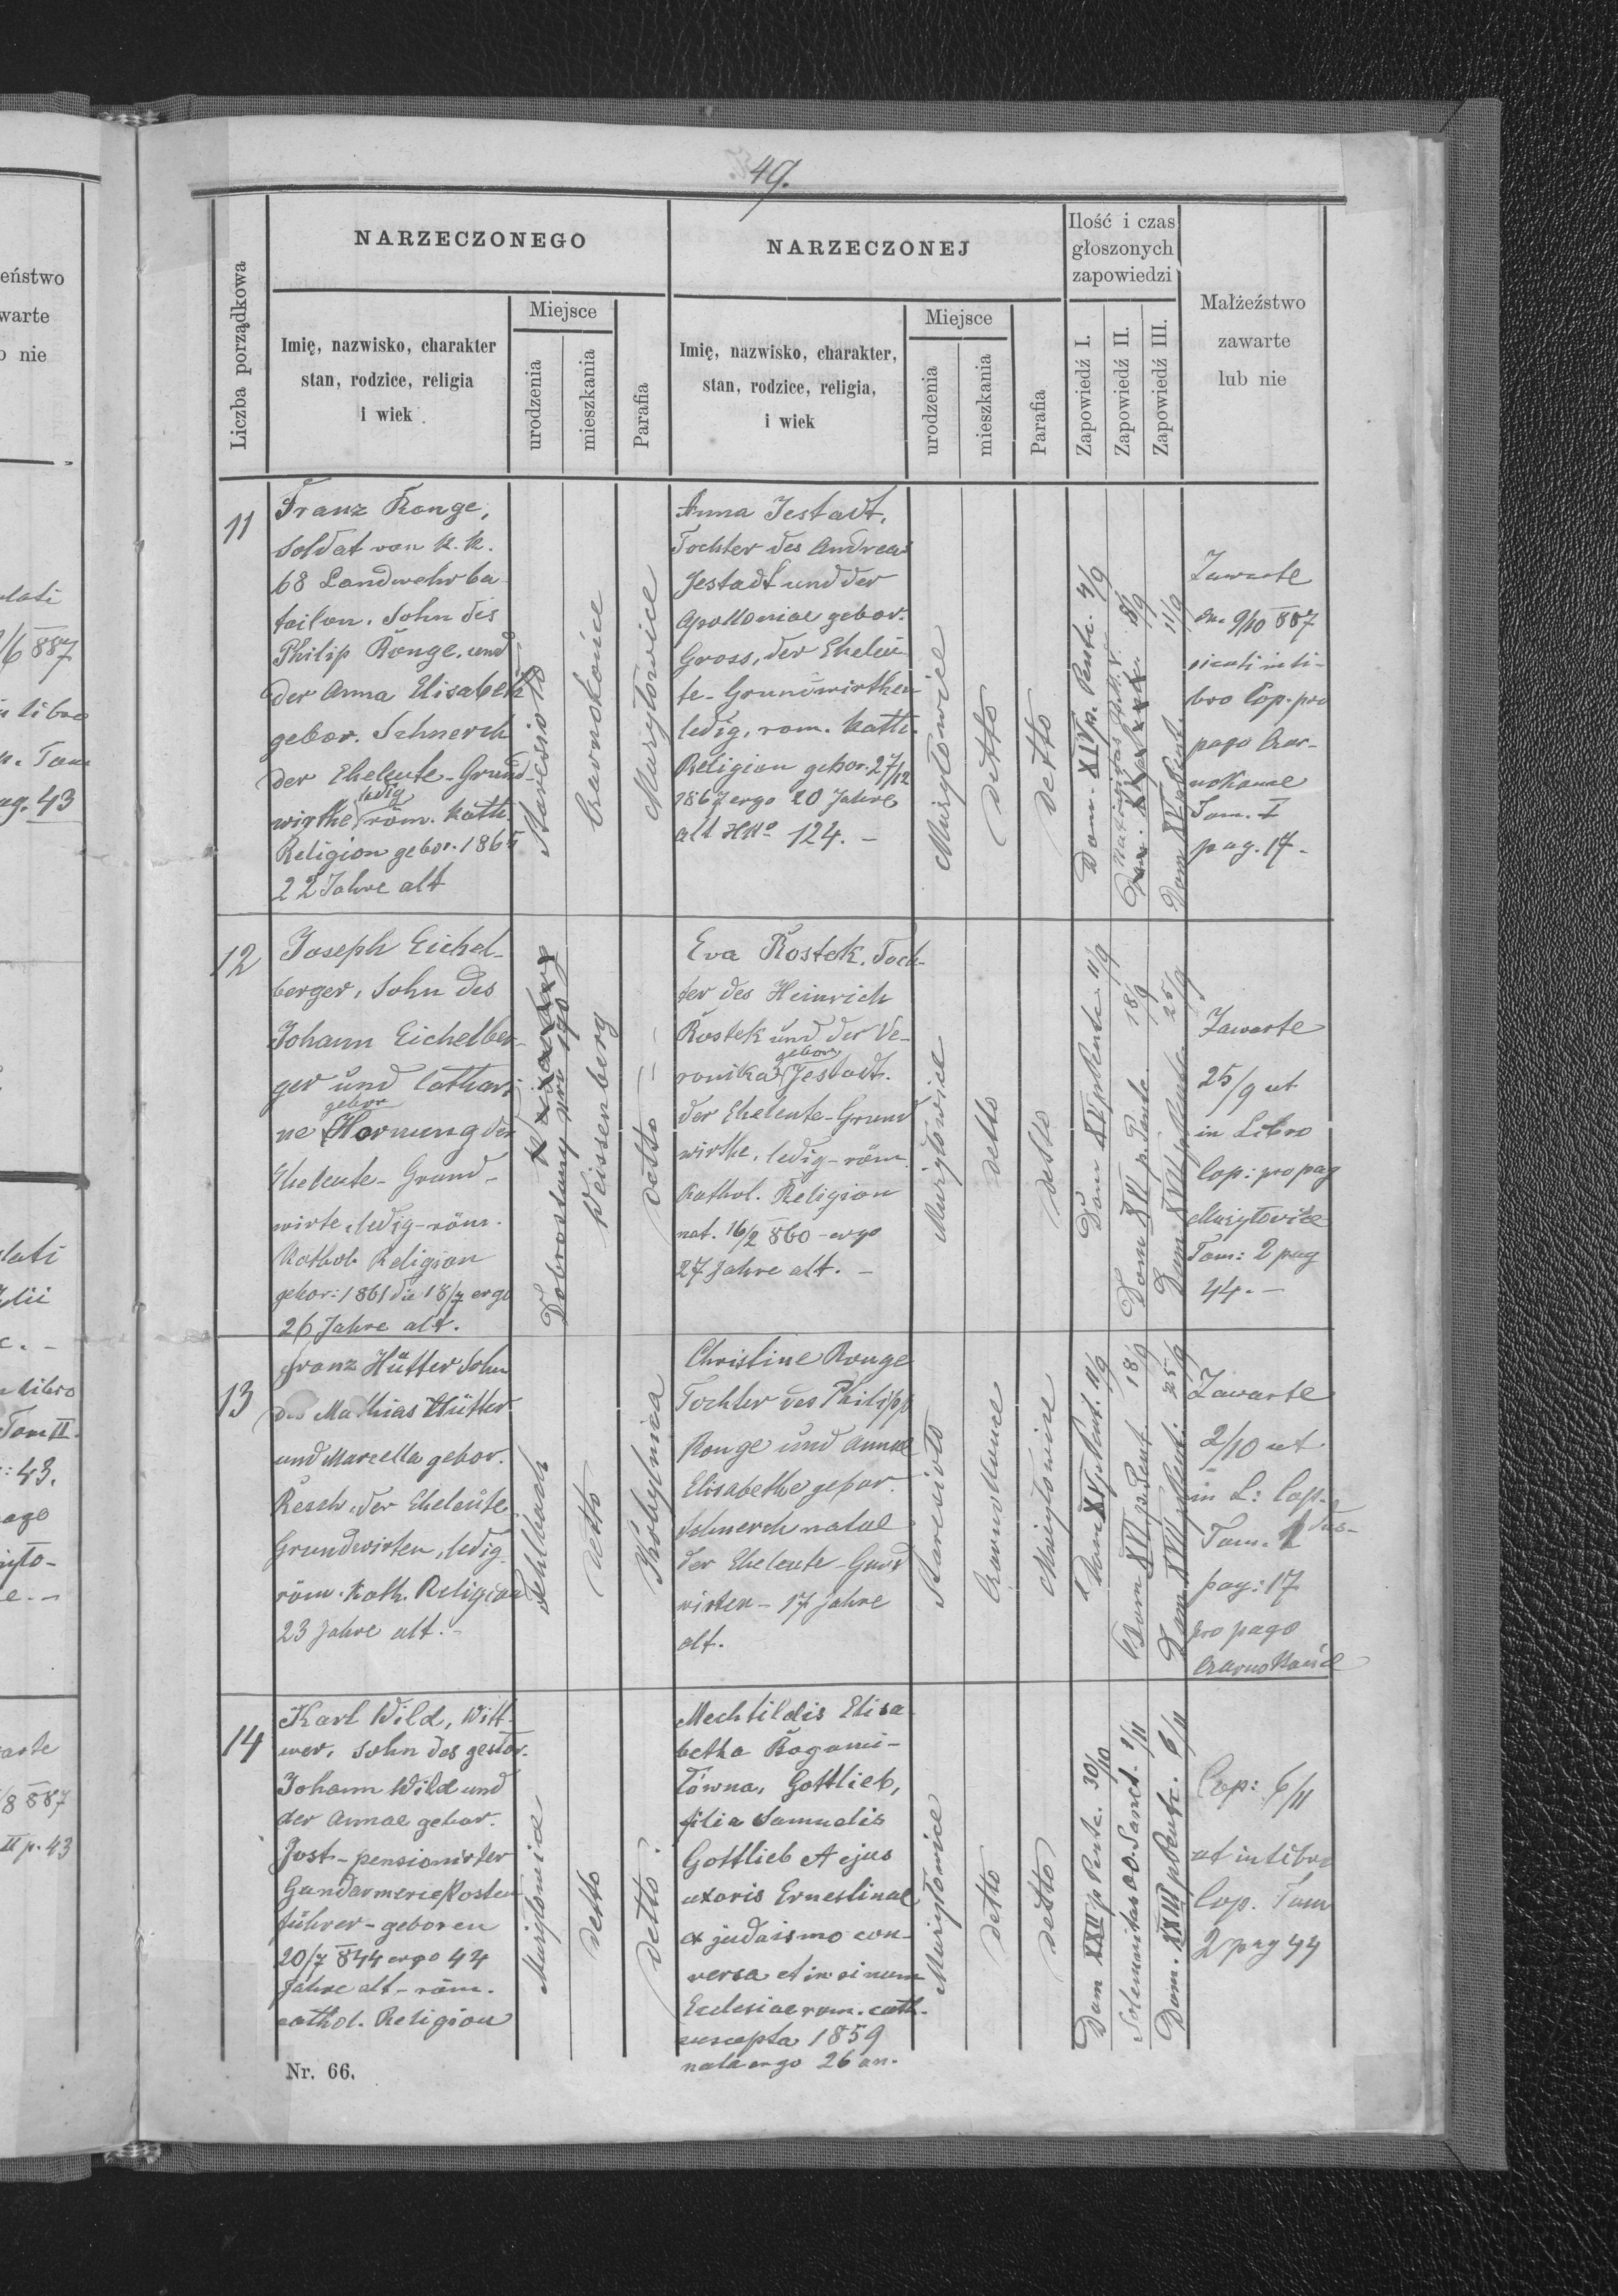 49.
NARZECZONEGO
NARZECZONEJ
Ilość i czas
głoszonych
zapowiedzi
Liczba porządkowa
Imię, nazwisko, charakter
stan, rodzice, religia
i wiek
Miejsce
urodzenia
mieszkania
Parafia
Imię, nazwisko, charakter,
stan, rodzice, religia,
i wiek
Miejsce
urodzenia
mieszkania
Parafia
Zapowiedź I.
Zapowiedź II.
Zapowiedź III.
Małżeźstwo
zawarte
lub nie
11
Franz Ronge,
Soldat von k. k.
68 Landwehr ba
tailon. Sohn des
Philip Ronge, und
der Anna Elisabeth
gebor. Schnerch
der Eheleute - Grund-
ledig
wirthe röm. kath.
Religion gebor. 1865
22 Jahre alt
Staresioło
Czarnokońce
Muzyłowice
Anna Jestadt,
Tochter des Andreas
Jestadt und der
Apolloniae gebor.
Gross, der Eheleu-
te - Grundwirthen
ledig, rom. kath.
Religion gebor. 27/12
1867 ergo 20 Jahre
alt HNo 124. -
Muzyłowice
detto
detto
Dom. XIV p. Pent. 4/9
Nativitas 8/9
Dom XV p. Pent. 11/9
Zawarte
die 9/10 887
sicuti in li-
bro Cop. pro
pago Czar-
nokońce
Tom. I
pag. 17.
12
Joseph Eichel-
berger, Sohn des
Johann Eichelber-
ger und Cathari
gebor
ne Hornung der
Eheleute - Grund-
wirte, ledig - röm.
Kathol. Religion
gebor: 1861 die 18/7 ergo
26 Jahre alt.
Dobrostany
Weissenberg
detto
Eva Rostek, Toch-
ter des Heinrich
Rostek und der Ve-
gebor
ronika Jestadt.
der Eheleute - Grund
wirthe, ledig - röm.
Kathol. Religion
nat. 16/2 860 - ergo
27 Jahre alt. -
Muzyłowice
detto
detto
Dom XV p Pente. 11/9
Dom XVI p. Pente. 18/9
Dom XVII p Pente. 25/9
Zawarte
25/9 ut
in Libro
Cop: pro pag
Muzyłowice
Tom: 2 pag
44. -
13
Franz Hütter Sohn
des Mathias Hütter
und Marcella gebor.
Resch, der Eheleute
Grundwirten, ledig
röm. Kath. Religion
23 Jahre alt. -
Fehlbach
detto
Kobylnica
Christine Ronge
Tochter des Philipp
Ronge und Annae
Elisabethe gebor.
Schnerch natae
der Eheleute - Grund
wirten - 17 Jahre
alt.
Staresioło
Czarnokońce
Muzyłowice
Dom XV p. Pent. 11/9
Dom XVI p. Pent. 18/9
Dom XVII p Pent. 25/9
Zawarte
2/10 ut
in L: Cop.
Tom. 1
pag: 17
pro pago
Czarnokońce
14
Karl Wild, Witt-
wer, Sohn des gestor.
Johann Wild und
der Annae gebor.
Jost - pensionirter
Gendarmerie Posten
führer - geboren
20/7 844 ergo 44
Jahre alt - röm.
cathol. Religion
Muzyłowice
detto
detto
Mechtildis Elisa
betha Bogumi-
łówna, Gottlieb,
filia Samuelis
Gottlieb et ejus
uxoris Ernestinae
ex judaismo con-
versa et in sinum
Ecclesiae rom. cath.
suscepta 1859
nata ergo 26 an.
Muzyłowice
detto
detto
Dom XXII p Pente. 30/10
Solemnitas OO. Sanct. 1/11
Dom. XXIII p Pente. 6/11
Cop: 6/11
ut in libro
Cop. Tom
2 pag 44
Nr. 66.
eństwo
warte
o nie
/6 887
ag. 43
Tom II.
: 43.
/8 887
II p. 43